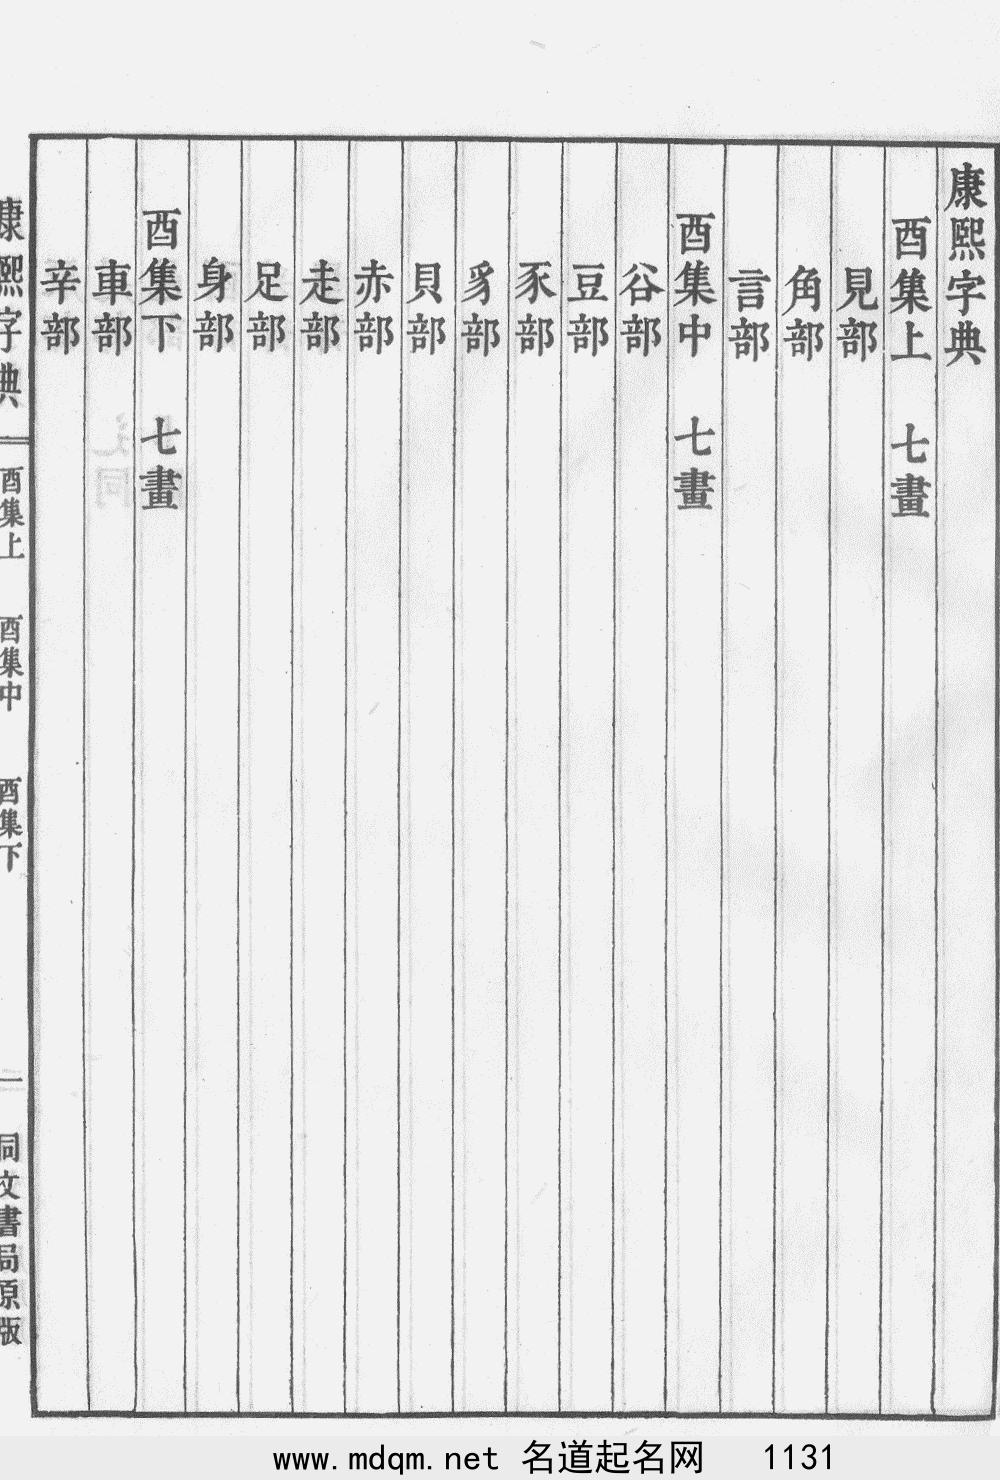 康熙字典
酉集上　七畫
見部
角部
言部
酉集中　七畫
谷部
豆部
豕部
豸部
貝部
赤部
走部
足部
身部
酉集下　七畫
車部
辛部
康熙字典　酉集上　酉集中　酉集下　一　同文書局原版
www.mdqm.net 名道起名网　1131